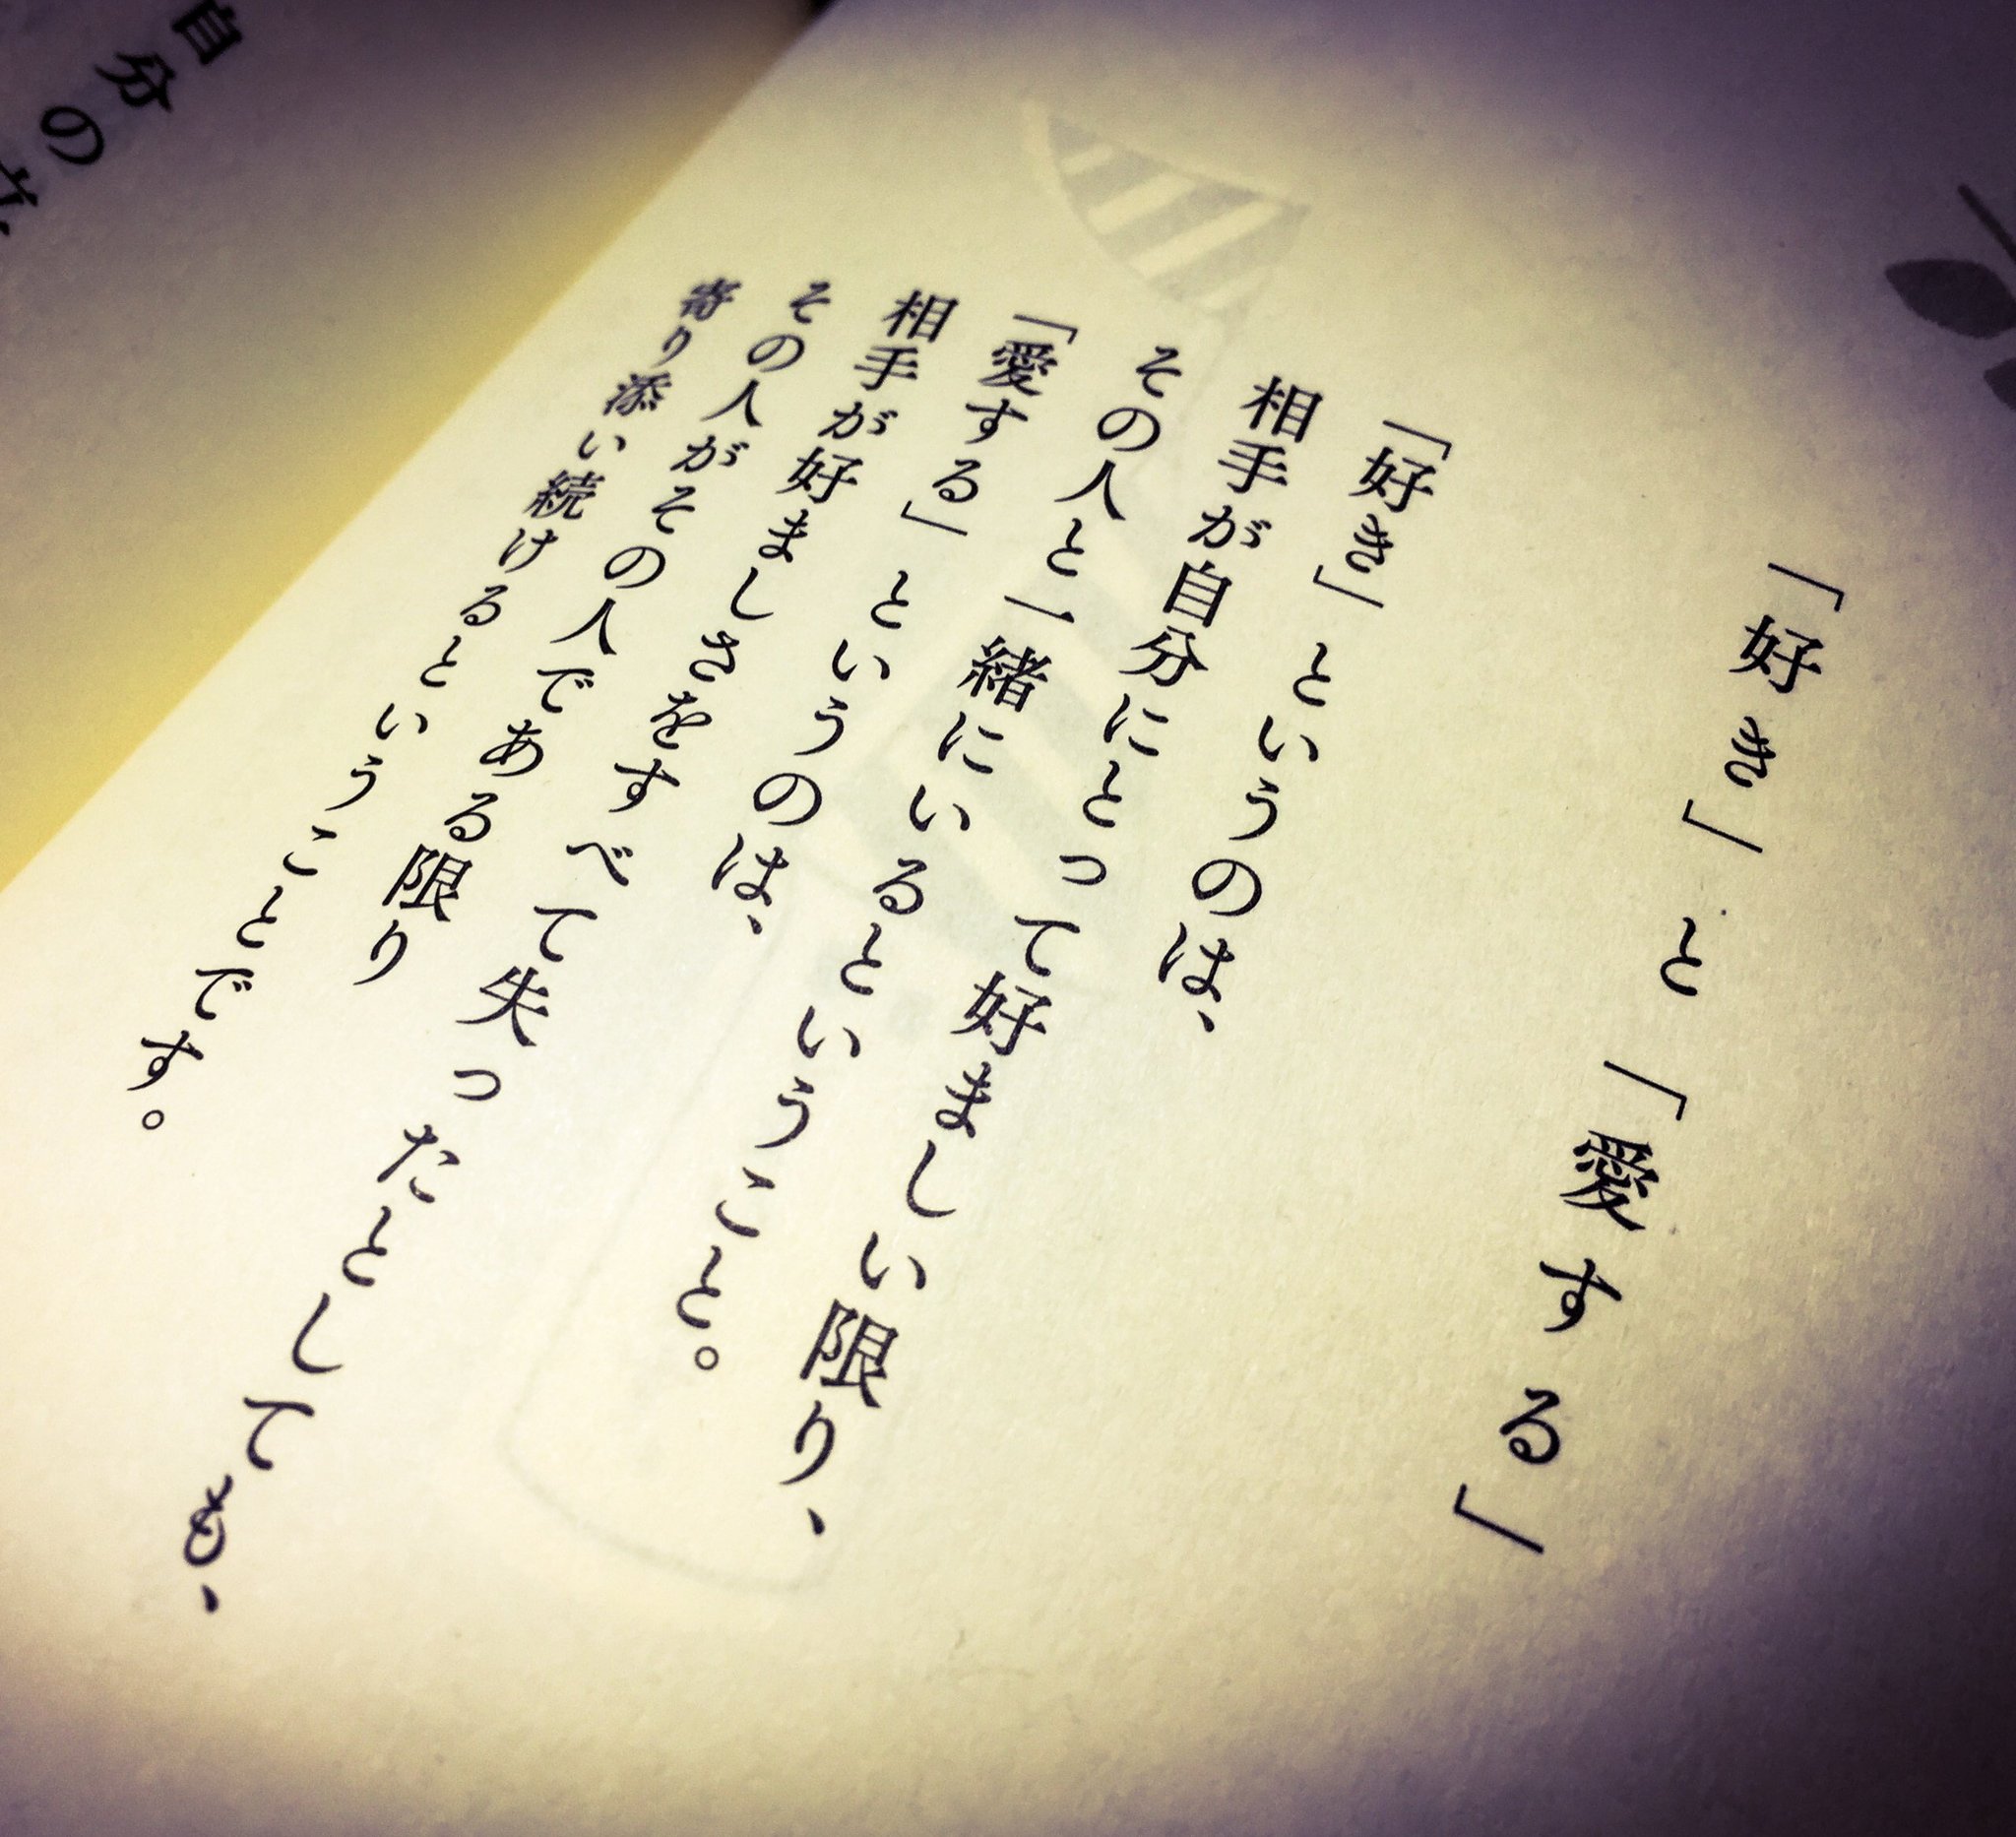 「好き」と「愛する」
「好き」というのは、
相手が自分にとって好ましい限り、
その人と一緒にいるということ。
「愛する」というのは、
相手が好ましさをすべて失ったとしても、
その人がその人である限り
寄り添い続けるということです。
自分の